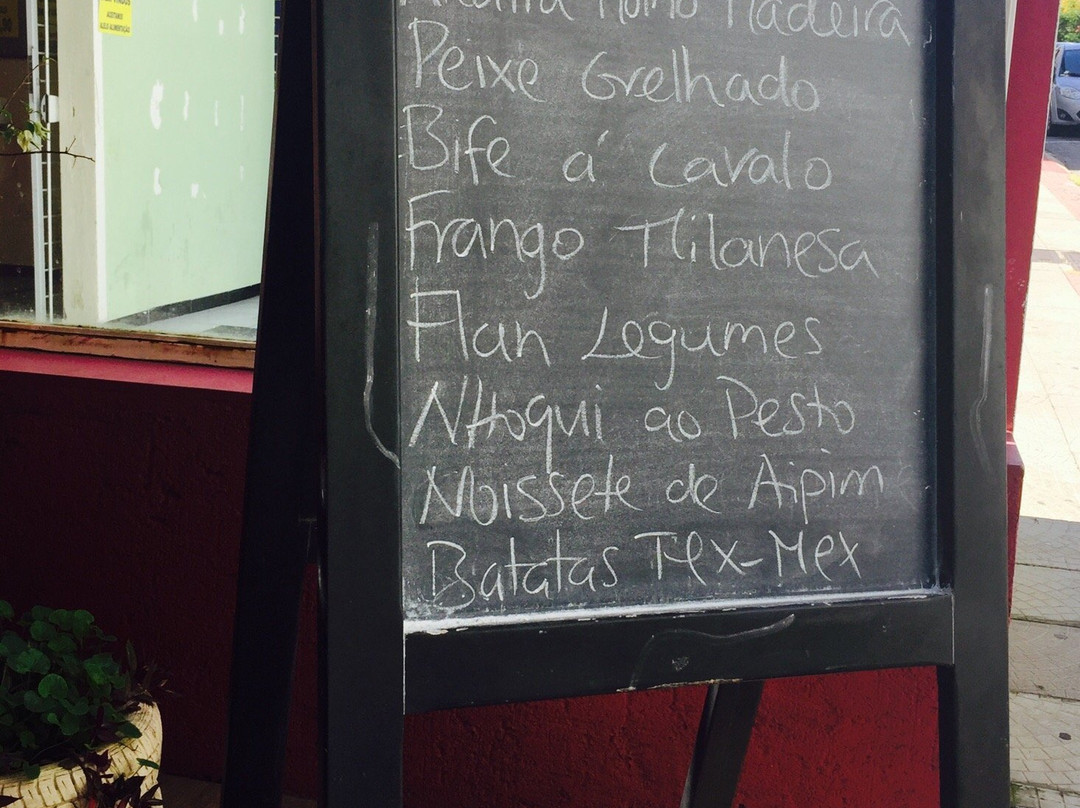 ACEITAMOS
Molho Madeira
Peixe Grelhado
Bife á Cavalo
Frango Milanesa
Flan Legumes
Nhoqui ao Pesto
Noissete de Aipim
Batatas Tex-Mex